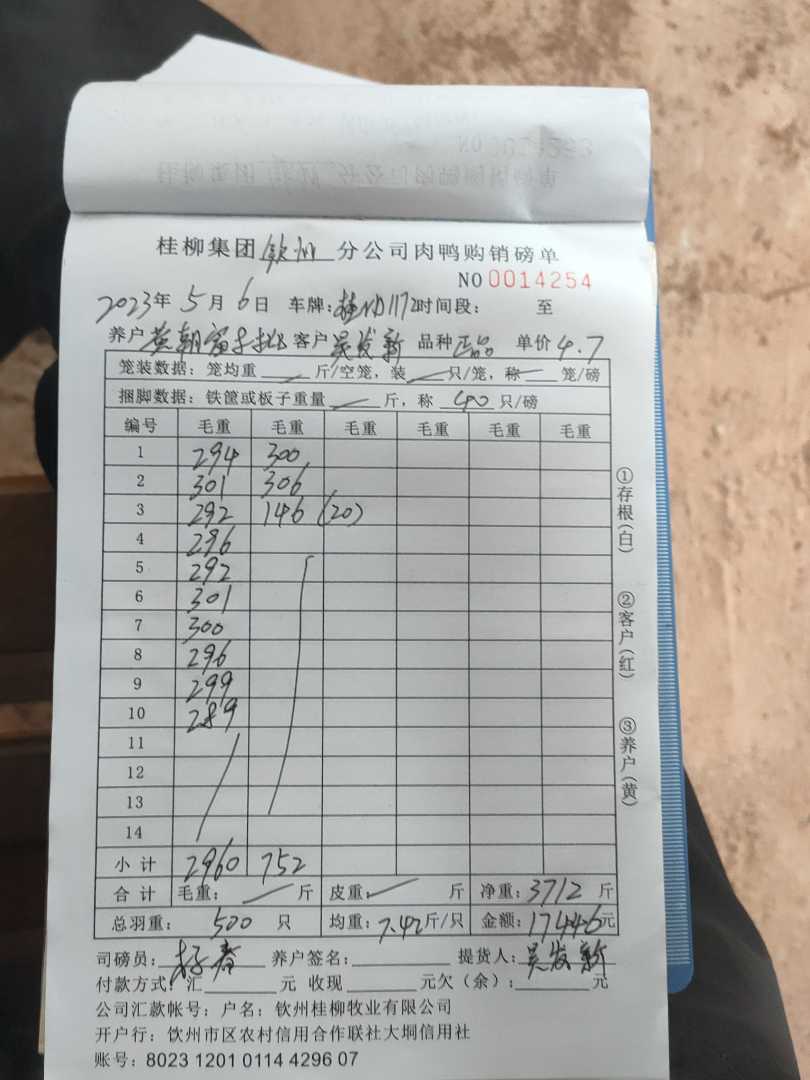 桂柳集团钦州分公司肉鸭购销磅单
NO 0014254
2023年5月6日 车牌: 1172时间段: 至
养户 客户吴发新 品种正品 单价4.7
笼装数据: 笼均重 斤/空笼, 装 只/笼, 称 笼/磅
捆脚数据: 铁筐或板子重量 斤, 称 40 只/磅
编号 毛重 毛重 毛重 毛重 毛重 毛重
1 294 300
2 301 306
3 292 146 (20)
4 296
5 292
6 301
7 300
8 296
9 299
10 289
11
12
13
14
小计 2960 752
合计 毛重: 斤 皮重: 斤 净重: 3712 斤
总羽重: 500 只 均重: 7.42斤/只 金额: 17446元
司磅员: 养户签名: 提货人: 吴发新
付款方式: 汇 元 收现 元欠(余): 元
公司汇款帐号: 户名: 钦州桂柳牧业有限公司
开户行: 钦州市区农村信用合作联社大垌信用社
账号: 8023 1201 0114 4296 07
①存根(白)
②客户(红)
③养户(黄)